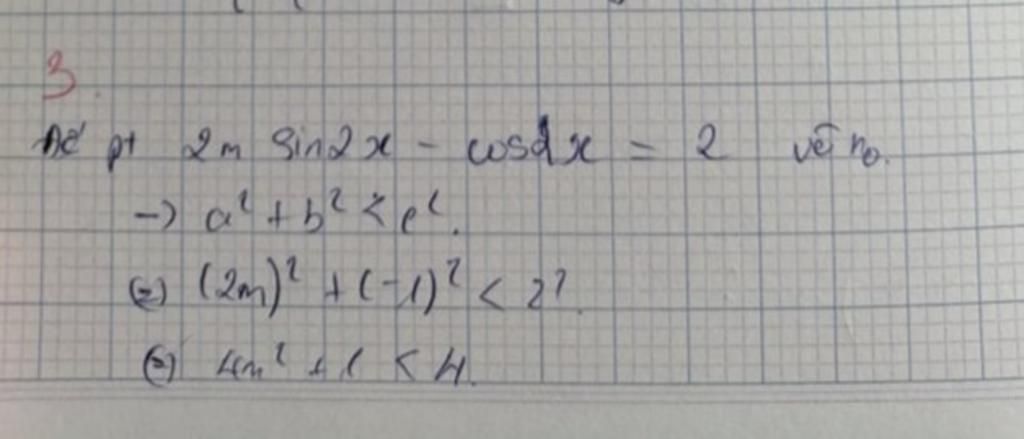 3.
Để pt 2m sin2x - cos2x = 2 vô no.
-> a² + b² < c².
(=) (2m)² + (-1)² < 2².
(=) 4m² + 1 < 4.